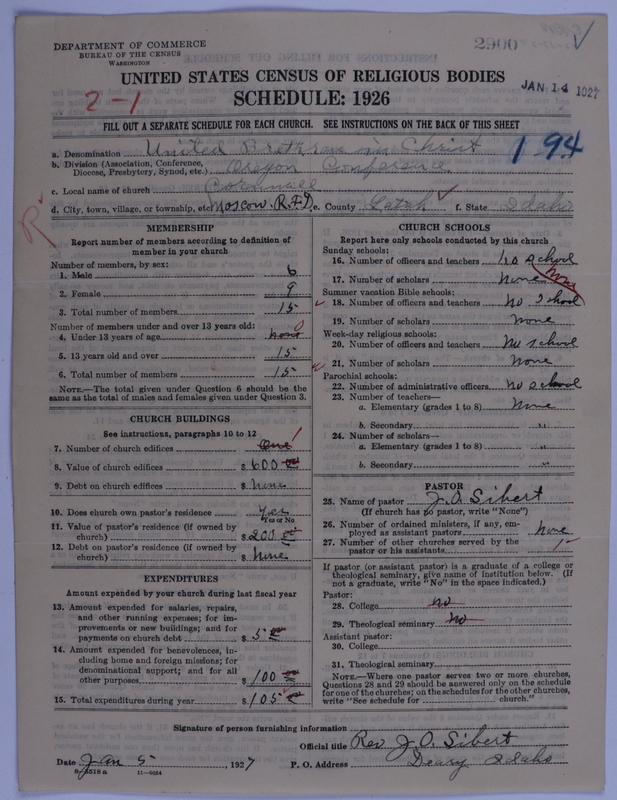 DEPARTMENT OF COMMERCE
BUREAU OF THE CENSUS
WASHINGTON
2900
UNITED STATES CENSUS OF RELIGIOUS BODIES
SCHEDULE: 1926
JAN 14 1927
2-1
FILL OUT A SEPARATE SCHEDULE FOR EACH CHURCH. SEE INSTRUCTIONS ON THE BACK OF THIS SHEET
1-94
a. Denomination United Brethren in Christ
b. Division (Association, Conference, Diocese, Presbytery, Synod, etc.) Oregon Conference
c. Local name of church Cornwall
d. City, town, village, or township, etc. Moscow. R.F.D. e. County Latah f. State Idaho
R
MEMBERSHIP
Report number of members according to definition of
member in your church
Number of members, by sex:
1. Male 6
2. Female 9
3. Total number of members 15
Number of members under and over 13 years old:
4. Under 13 years of age none 0
5. 13 years old and over 15
6. Total number of members 15
NOTE.—The total given under Question 6 should be the
same as the total of males and females given under Question 3.
CHURCH BUILDINGS
See instructions, paragraphs 10 to 12
7. Number of church edifices One 1
8. Value of church edifices $ 600 00
9. Debt on church edifices $ None
10. Does church own pastor's residence Yes
Yes or No
11. Value of pastor's residence (if owned by
church) $ 200 00
12. Debt on pastor's residence (if owned by
church) $ None
EXPENDITURES
Amount expended by your church during last fiscal year
13. Amount expended for salaries, repairs,
and other running expenses; for im-
provements or new buildings; and for
payments on church debt $ 5 00
14. Amount expended for benevolences, in-
cluding home and foreign missions; for
denominational support; and for all
other purposes $ 100 00
15. Total expenditures during year $ 105 00
CHURCH SCHOOLS
Report here only schools conducted by this church
Sunday schools:
16. Number of officers and teachers no school
17. Number of scholars None none
Summer vacation Bible schools:
18. Number of officers and teachers no school
19. Number of scholars none
Week-day religious schools:
20. Number of officers and teachers no school
21. Number of scholars None
Parochial schools:
22. Number of administrative officers no school
23. Number of teachers—
a. Elementary (grades 1 to 8) None
b. Secondary "
24. Number of scholars—
a. Elementary (grades 1 to 8) "
b. Secondary "
PASTOR
25. Name of pastor J. O. Sibert
(If church has no pastor, write "None")
26. Number of ordained ministers, if any, em-
ployed as assistant pastors None
27. Number of other churches served by the
pastor or his assistants 1
If pastor (or assistant pastor) is a graduate of a college or
theological seminary, give name of institution below. (If
not a graduate, write "No" in the space indicated.)
Pastor:
28. College no
29. Theological seminary no
Assistant pastor:
30. College
31. Theological seminary
NOTE.—Where one pastor serves two or more churches,
Questions 28 and 29 should be answered only on the schedule
for one of the churches; on the schedules for the other churches,
write "See schedule for church."
Signature of person furnishing information Rev J. O. Sibert
Official title
Date Jan 5, 1927 P. O. Address Deary Idaho
8-5518 a 11—9024